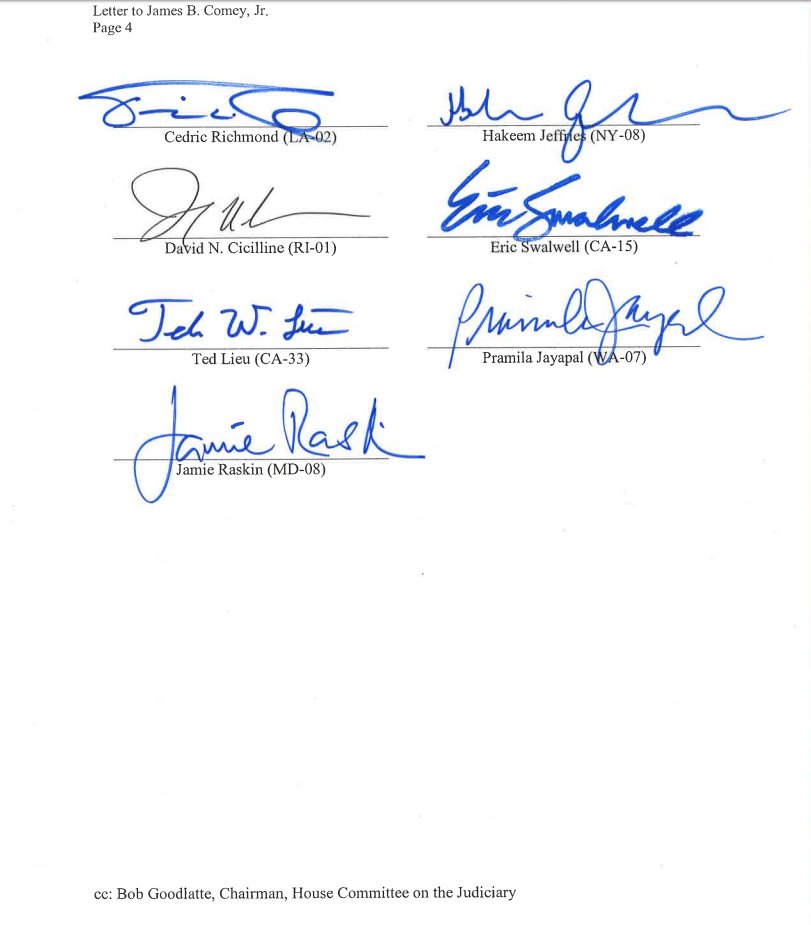 Letter to James B. Comey, Jr.
Page 4
Cedric Richmond (LA-02)
Hakeem Jeffries (NY-08)
David N. Cicilline (RI-01)
Eric Swalwell
Eric Swalwell (CA-15)
Ted W. Lieu
Ted Lieu (CA-33)
Pramila Jayapal
Pramila Jayapal (WA-07)
Jamie Raskin
Jamie Raskin (MD-08)
cc: Bob Goodlatte, Chairman, House Committee on the Judiciary